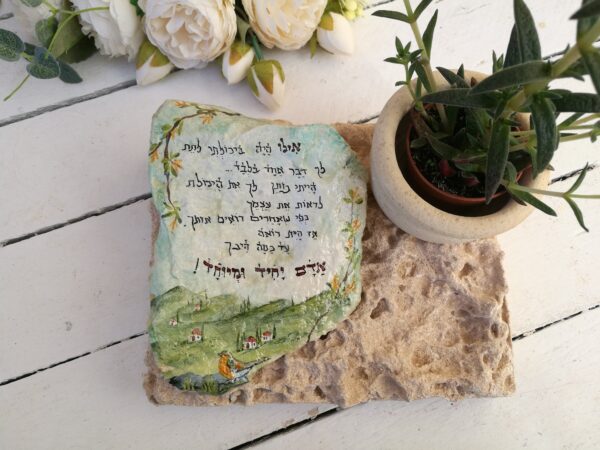 אילו היה ביכולתי לתת
לך דבר אחד בלבד...
הייתי נותן לך את היכולת
לראות את עצמך
כפי שאחרים רואים אותך
אז היית רואה
עד כמה הינך
אדם יחיד ומיוחד!